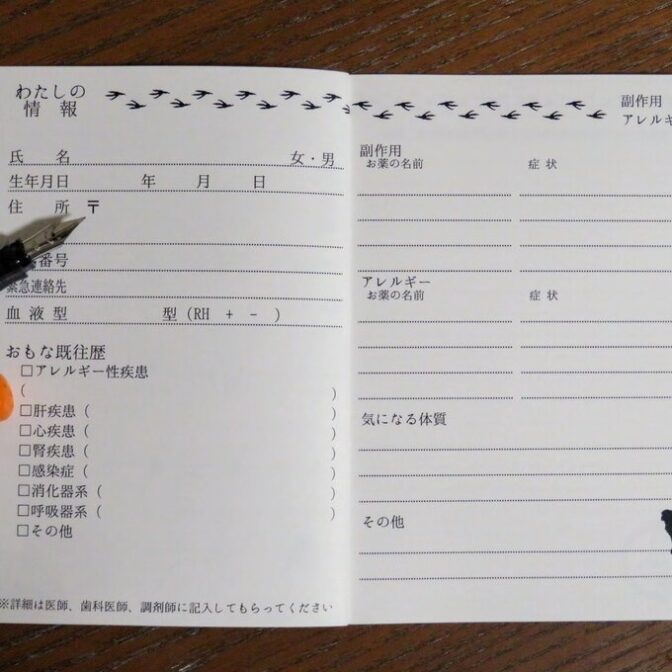 わたしの
情報
氏 名 女・男
生年月日 年 月 日
住 所 〒
番号
緊急連絡先
血液型 型 (RH + - )
おもな既往歴
□アレルギー性疾患
( )
□肝疾患 ( )
□心疾患 ( )
□腎疾患 ( )
□感染症 ( )
□消化器系 ( )
□呼吸器系 ( )
□その他
※詳細は医師、歯科医師、調剤師に記入してもらってください
副作用
アレルギ
副作用
お薬の名前 症状
アレルギー
お薬の名前 症状
気になる体質
その他